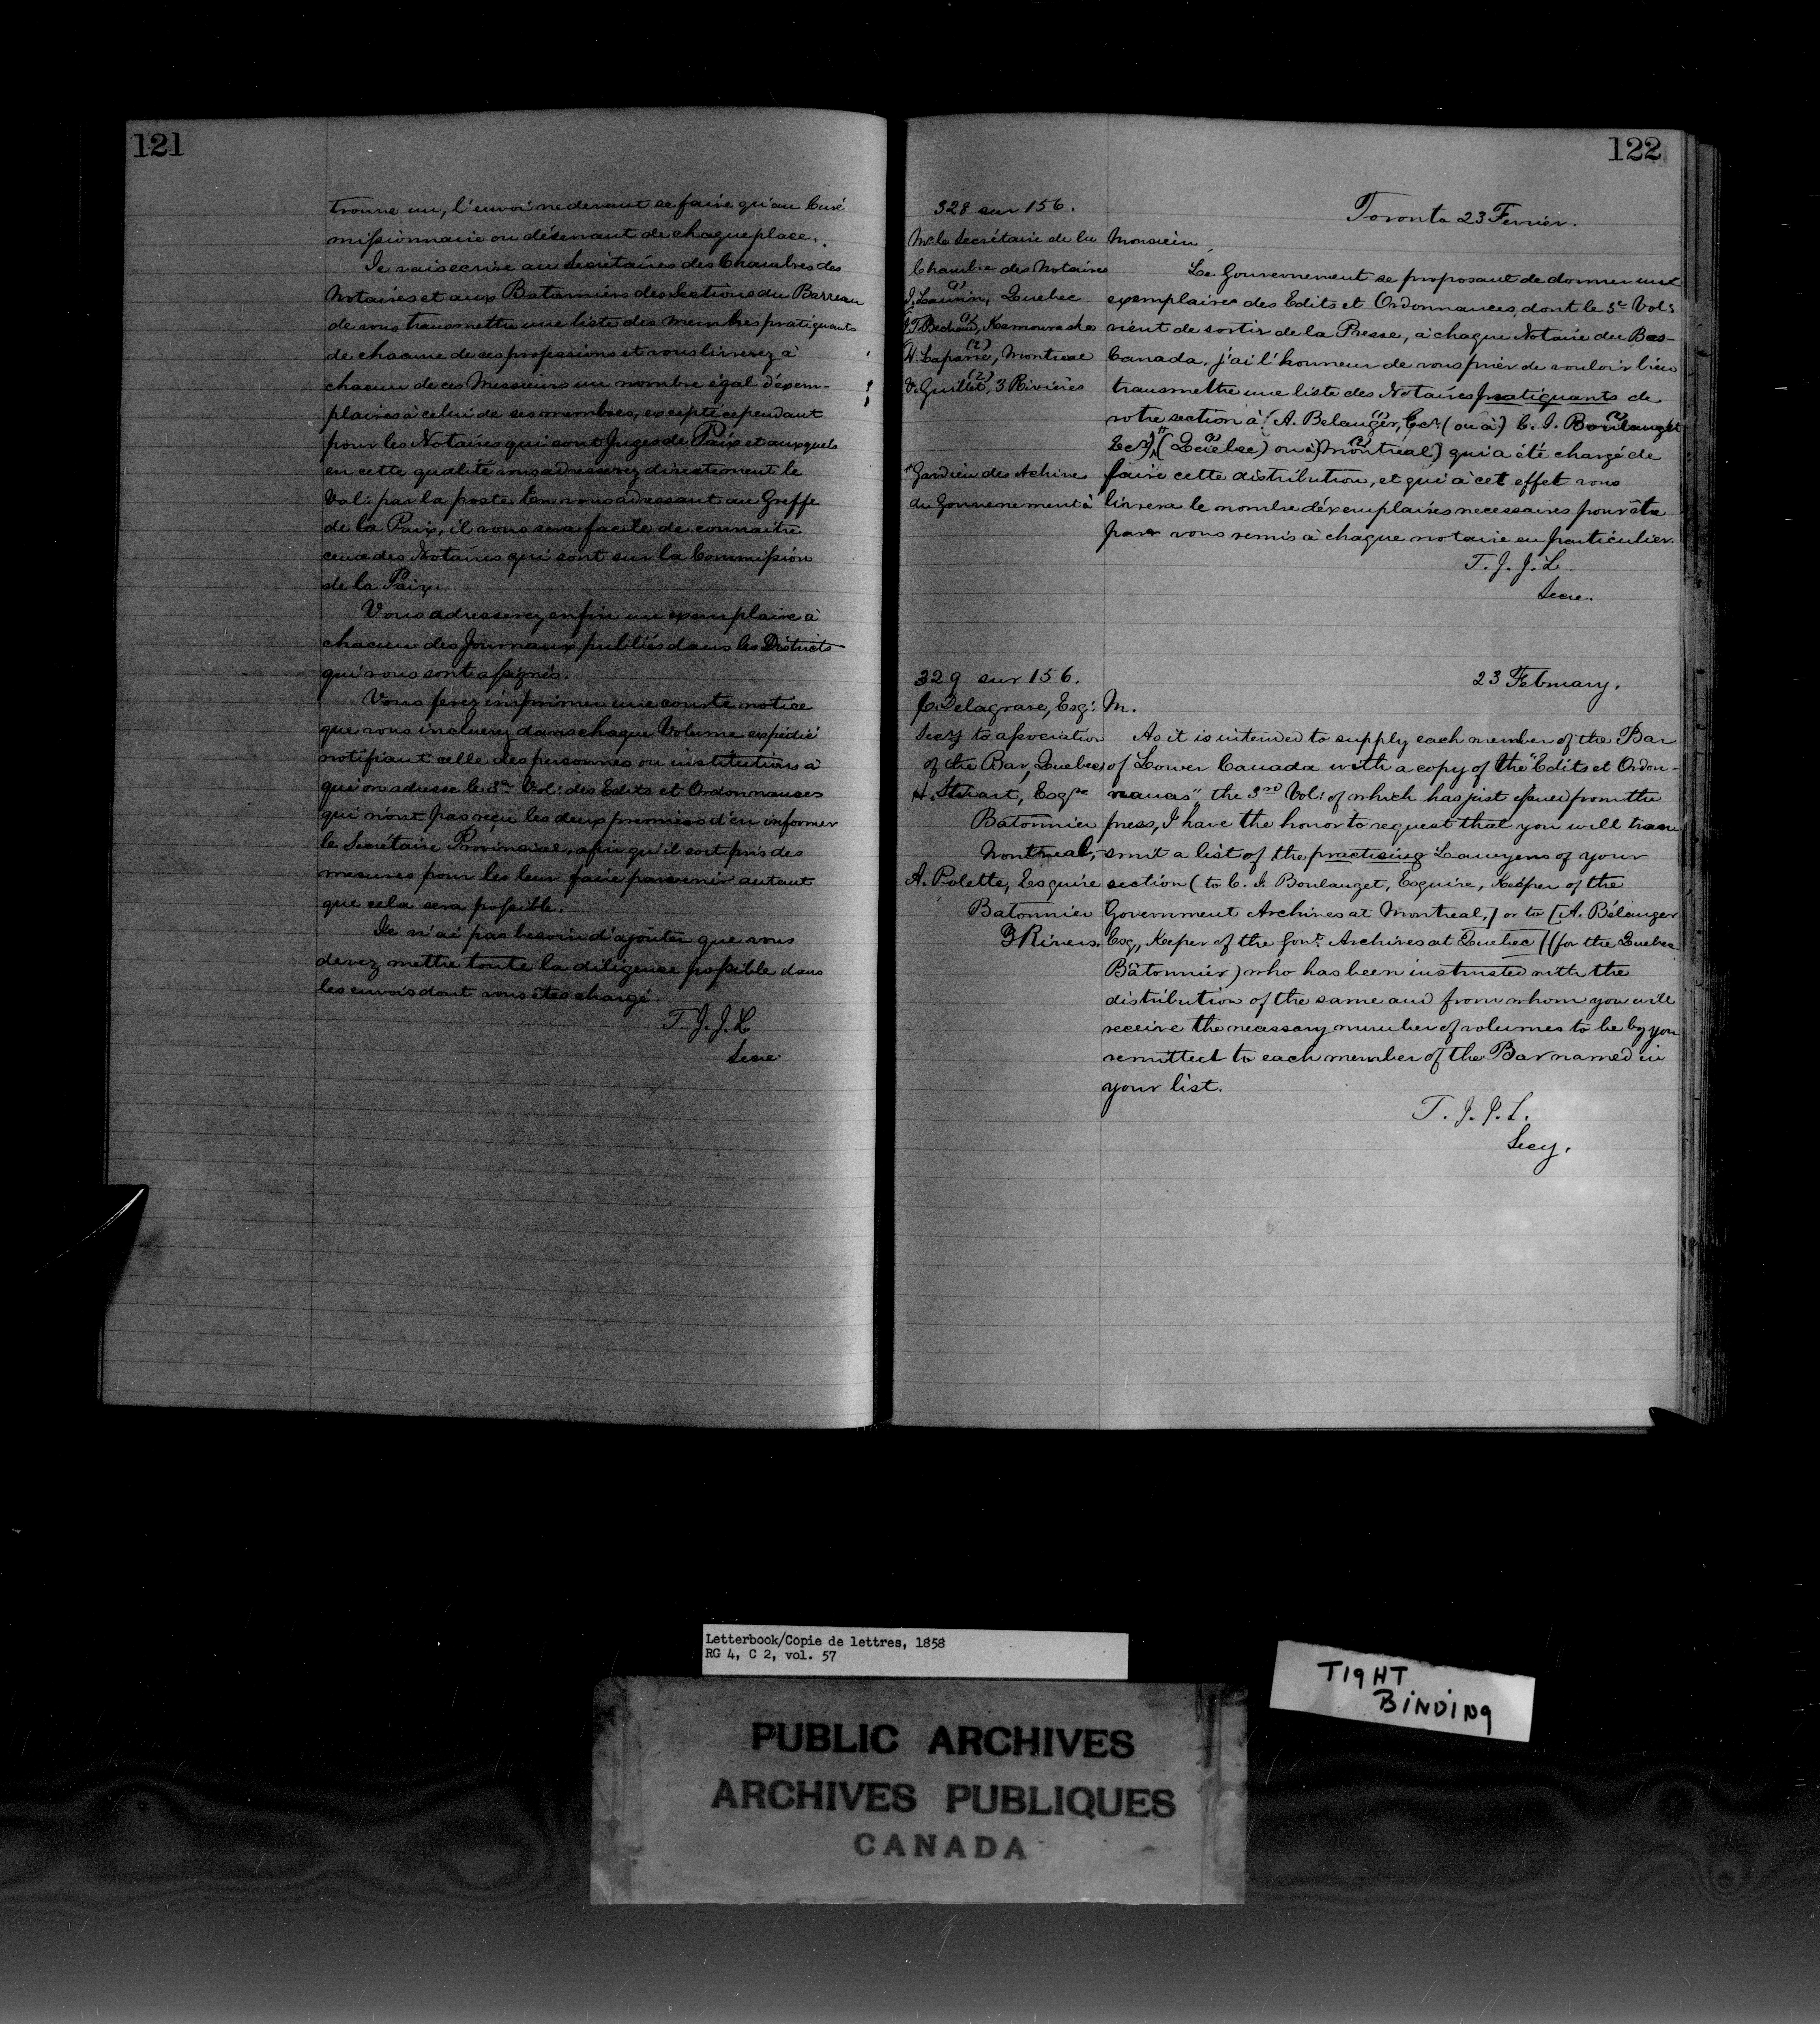 121
trouve un, l'envoi ne devant se faire qu'au Curé
missionnaire ou désservant de chaque place.
Je vais ecrire au Secrétaires des Chambres des
Notaires et aux Batonniers des Sections du Barreau
de vous transmettre une liste des membres pratiquants
de chacune de ces professions et vous livrerez à
chacun de ces Messieurs un nombre égal d'éxem-
plaires à celui de ses membres, excepté cependant
pour les Notaires qui sont Juges de Paix et auxquels
en cette qualité vous adresserez directement le
Vol: par la poste. En vous adressant au Greffe
de la Paix, il vous sera facile de connaitre
ceux des Notaires qui sont sur la Commission
de la Paix.
Vous adresserez enfin un exemplaire à
chacun des Journaux publiés dans les Districts
qui vous sont assignés.
Vous ferez imprimer une courte notice
que vous incluerez dans chaque Volume expédié
notifiant celle des personnes ou institutions à
qui on adresse le 3e Vol: des Edits et Ordonnances
qui n'ont pas reçu les deux premiers d'en informer
le Secrétaire Provincial, afin qu'il soit pris des
mesures pour les leur faire parvenir autant
que cela sera possible.
Je n'ai pas besoin d'ajouter que vous
devez mettre toute la diligence possible dans
les envois dont vous êtes chargé.
T. J. J. L
Secre
122
328 sur 156.
Mr le Secrétaire de la
Chambre des Notaires
(1)
J. Laurin, Quebec
(1)
J. T. Bechard, Kamouraska
(2)
H. Laparre, Montreal
(2)
V. Guillet, 3 Rivières
* Gardien des Achives
du Gouvernement à
Toronto 23 Fevrier.
Monsieur,
Le Gouvernement se proposant de donner une
exemplaires des Edits et Ordonnances dont le 3e Vol:
vient de sortir de la Presse, à chaque Notaire du Bas-
Canada, j'ai l'honneur de vous prier de vouloir bien
transmettre une liste des Notaires pratiquants de
votre section à (A. Belanger, (1) Ecr. (ou à) C. J. Boulanget (2)
Ecr) * (Quebec) (1) ou à) Montréal] (2) qui a été chargé de
faire cette distribution, et qui à cet effet vous
livrera le nombre d'éxemplaires necessaires pour être
par vous remis à chaque notaire en particulier.
T. J. J. L.
Secre.
329 sur 156.
C. Delagrave, Esq:
Secy to association
of the Bar, Quebec,
H. Stuart, Esqre
Batonnier
Montreal,
A. Polette, Esquire
Batonnier
3 Rivers.
23 February.
M.
As it is intended to supply each member of the Bar
of Lower Canada with a copy of the "Edits et Ordon-
nances" the 3rd Vol: of which has just issued from the
press, I have the honor to request that you will tran-
smit a list of the practising Lawyers of your
section (to C. J. Boulanget, Esquire, Keeper of the
Government Archives at Montreal,] or to [A. Bélanger
Esq,, Keeper of the Govt. Archives at Quebec] (for the Quebec
Bâtonnier) who has been instrusted with the
distribution of the same and from whom you will
receive the necessary number of volumes to be by you
remitted to each member of the Bar named in
your list.
T. J. J. L.
Secy.
Letterbook/Copie de lettres, 1858
RG 4, C 2, vol. 57
TIGHT
BINDING
PUBLIC ARCHIVES
ARCHIVES PUBLIQUES
CANADA